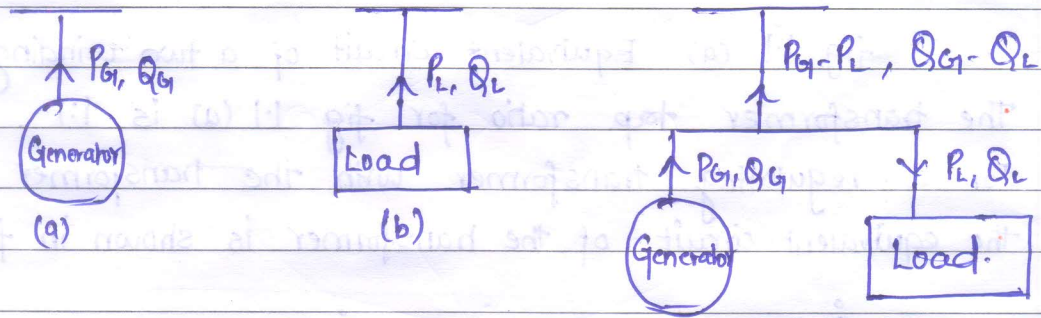 P_G, Q_G
Generator
(a)
P_L, Q_L
Load
(b)
P_G-P_L, Q_G-Q_L
P_G, Q_G
Generator
P_L, Q_L
Load.